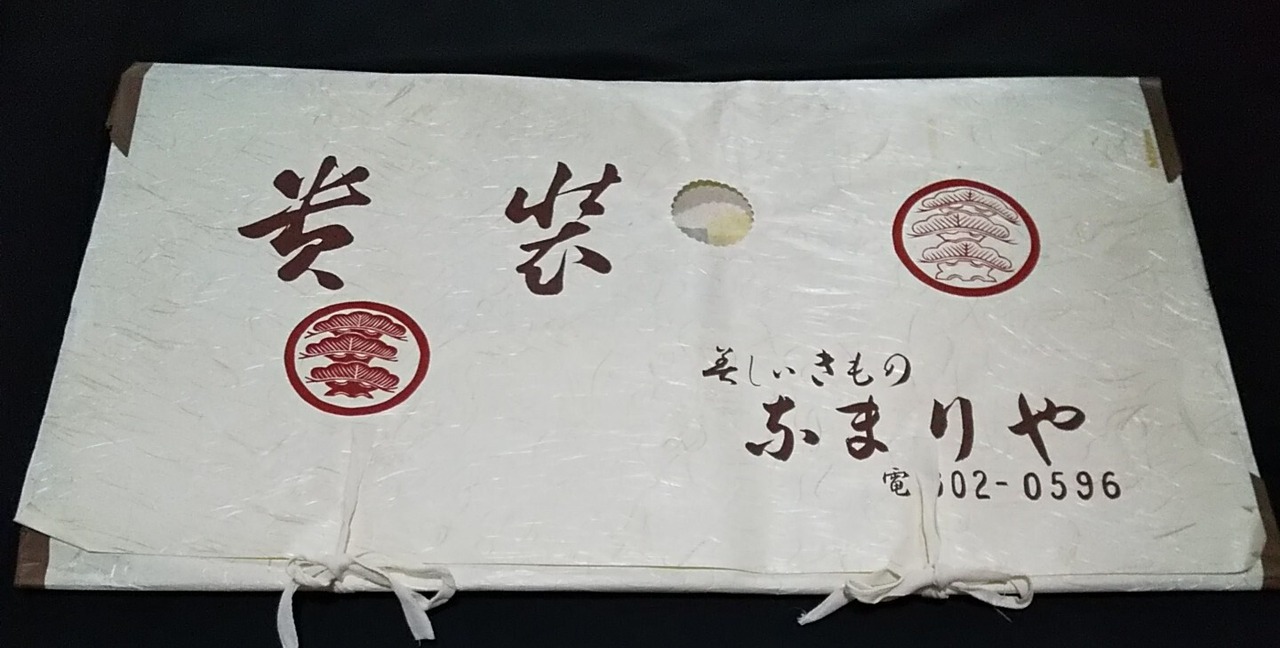 貴装
美しいきもの
なまりや
電 602-0596